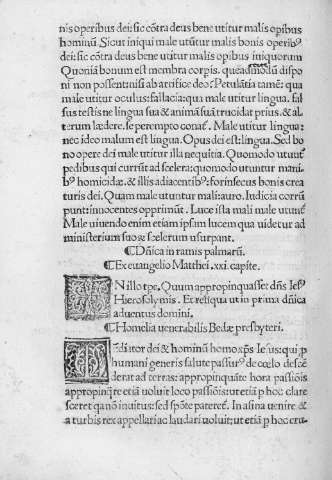 nis operibus dei: sic cōtra deus bene utitur malis opibus
hominū. Sicut iniqui male utūtur malis bonis operibꝰ
dei: sic bene deus utitur malis opibus iniquorum
Quoniā bonum est membra corpis. quēadmodū dispo
ni non possent nisi ab artifice deo: Petulātia tamē: qua
male utitur oculus: fallacia: qua male utitur lingua. fal
sus testis ne lingua sua & animā suā trucidat prius. & al
terum lædere, se perempto conat᷑. Male utitur lingua:
nec ideo malum est lingua. Opus dei est: lingua. Sed bo
no opere dei male utitur illa nequitia. Quomodo utunt᷑
pedibus qui currūt ad scelera: quomodo utuntur mani
bꝰ homicidæ. & illis adiacentibꝰ: forinsecus bonis crea
turis dei. Quam male utuntur mali: auro. Iudicia corrū
punt: innocentes opprimūt. Luce ista mali male utunt᷑
Male uiuendo enim etiam ipsam lucem qua uidetur ad
ministerium suoꝝ scelerum usurpant.
¶ Dn̄ica in ramis palmarū.
¶ Ex euangelio Matthei .xxi. capite.
IN illo tpe. Quum appropinquasset dn̄s Iesꝰ
Hierosolymis. Et reliqua ut in prima dn̄ica
aduentus domini.
¶ Homelia uenerabilis Bedæ presbyteri.
MEdiator dei & hominū homo xp̄s Iesus: qui p
humani generis salute passurꝰ de cœlo descē
derat ad terras: appropinquāte hora passiōis
appropinq̄re etiā uoluit loco passiōis: ut etiā p hoc clare
sceret qa nō inuitus: sed spōte pateret᷑. In asina uenire &
a turbis rex appellari ac laudari uoluit: ut etiā p hoc cru-